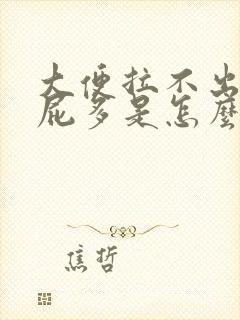 大便拉不出
屁多是怎麼
焦哲